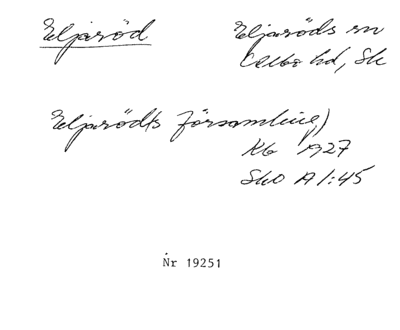 Eljaröd Eljaröds sn
Albo hd, Sk
Eljaröd(s församling)
Kb 1927
SkO A1:45
Nr 19251